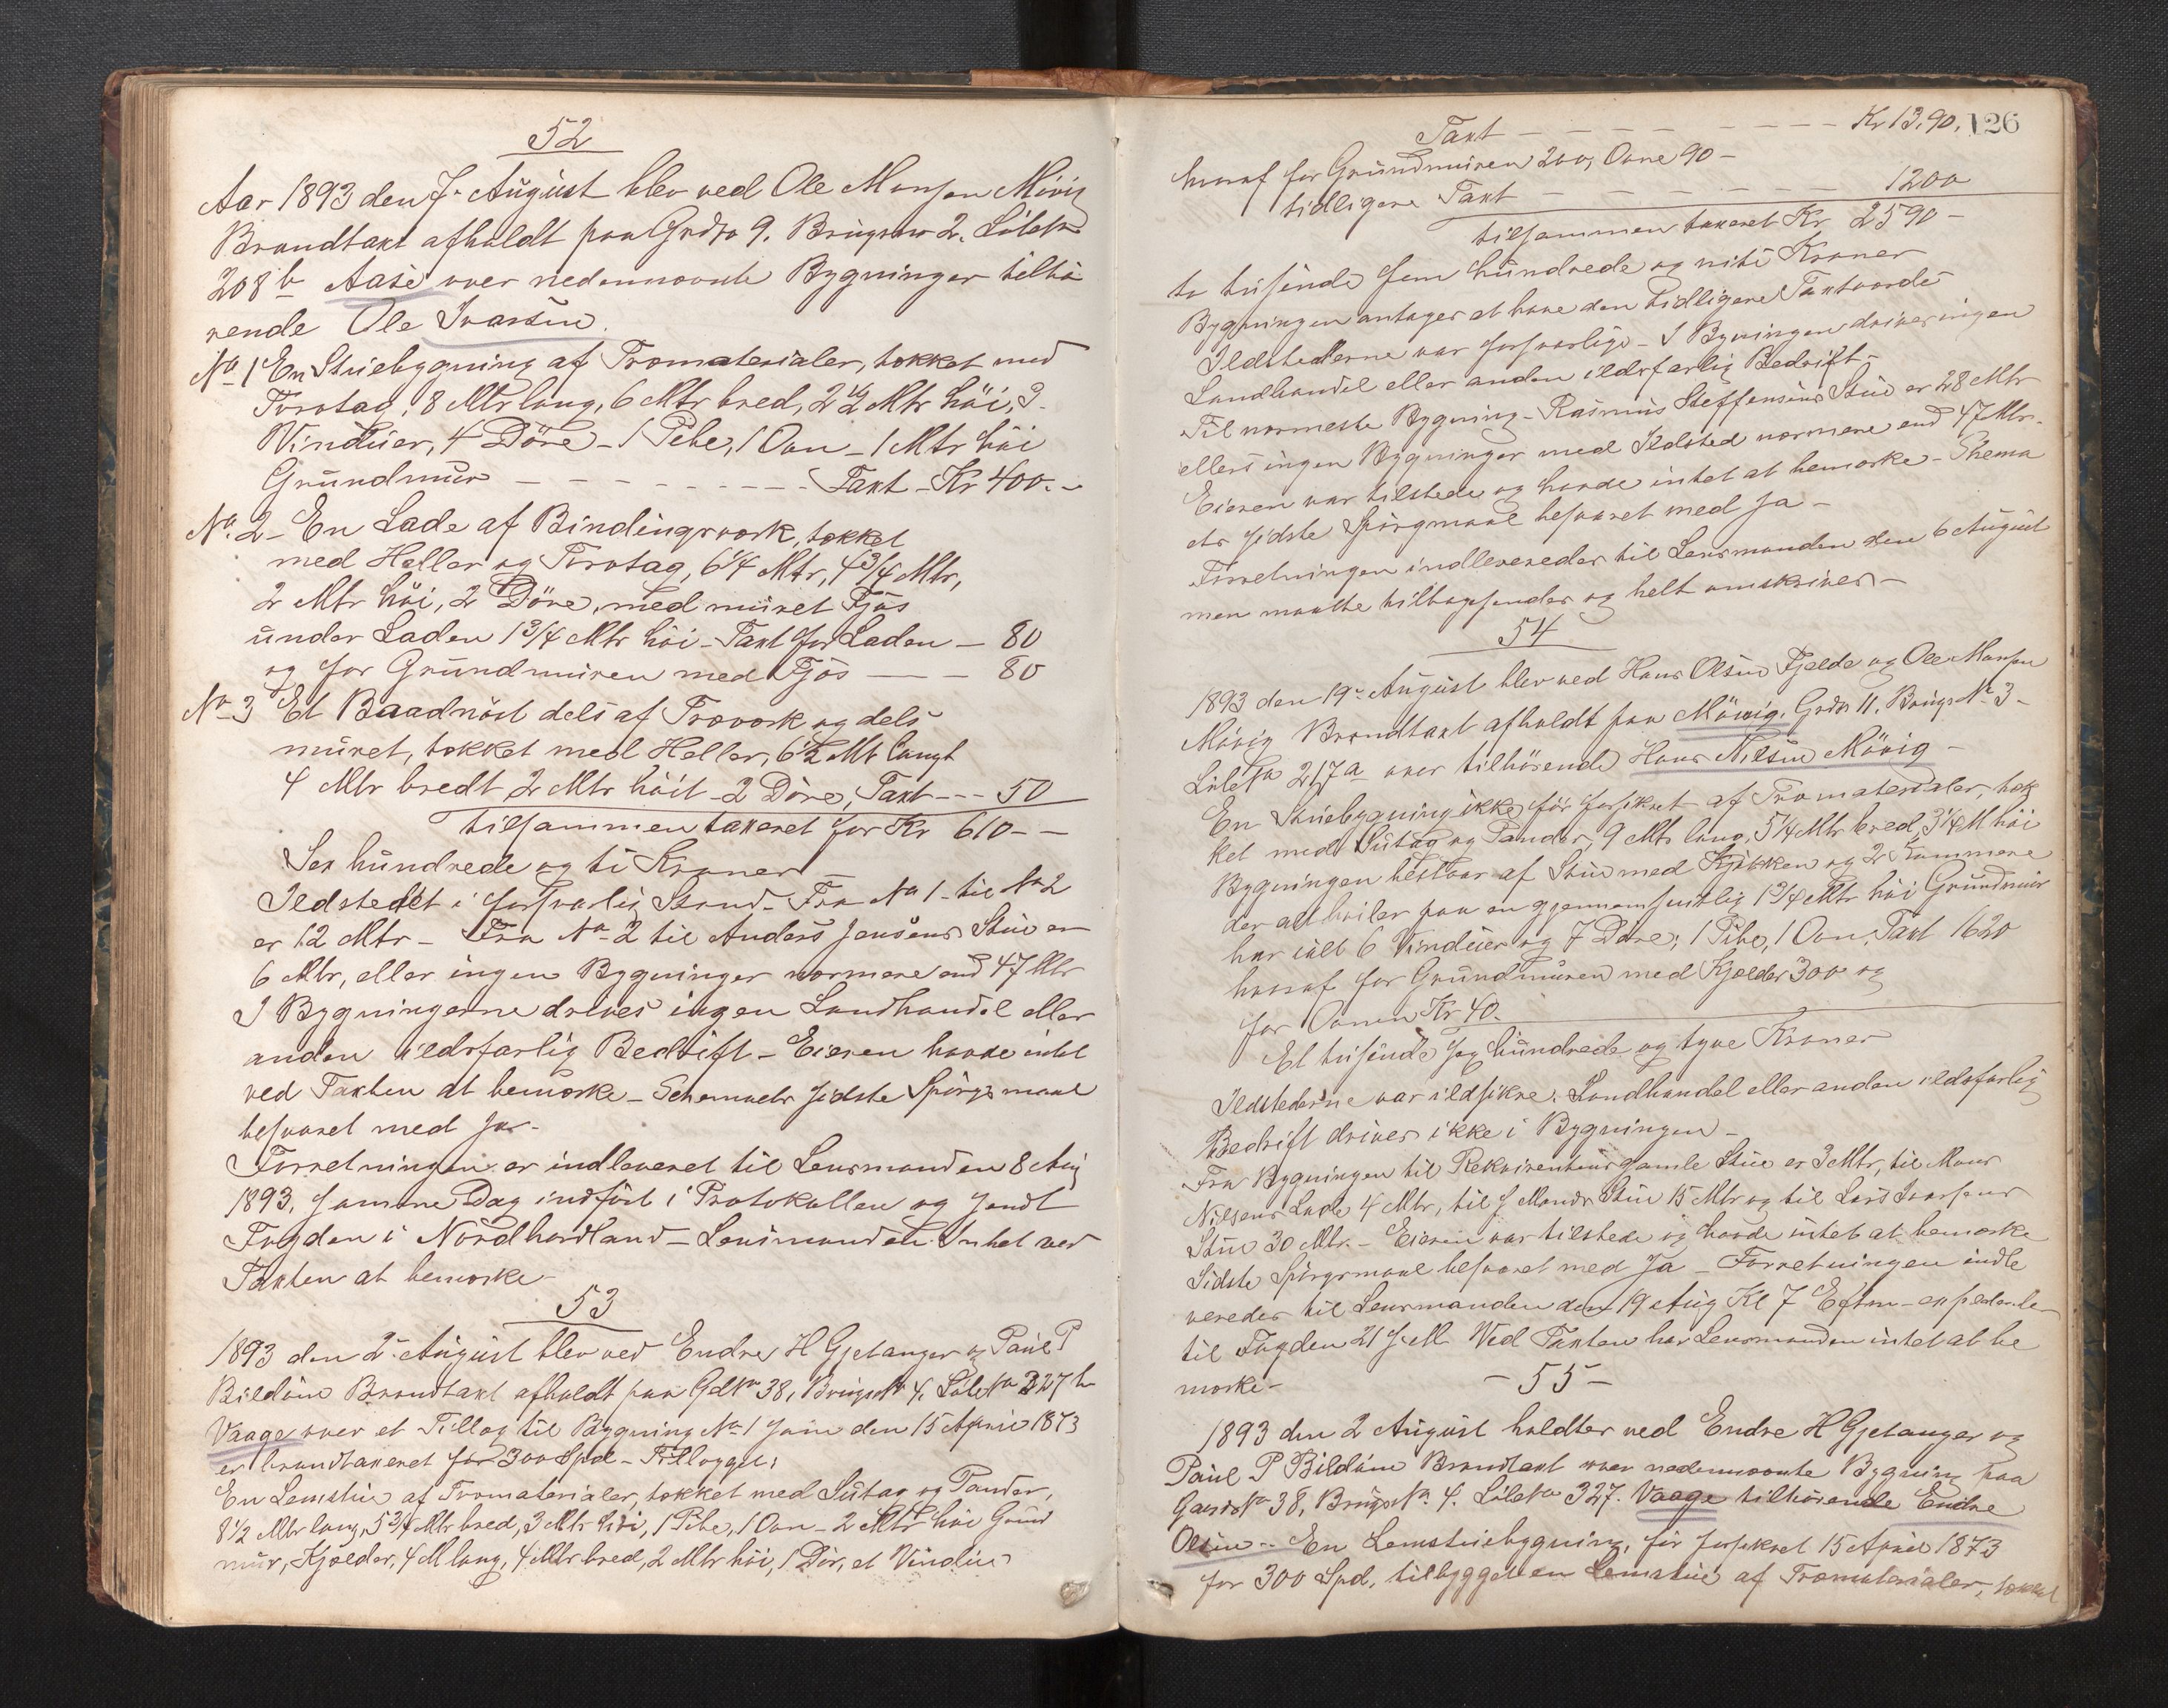 52
Aar 1893 den 7. August blev ved Ole Monsen Mövig
Brandtaxt afholdt paa Grdno 9. Brugsno 2. Löbeno
208 b Aase over nedennævnte Bygninger tilhö
rende Ole Ivarsen.
No 1 En Stuebygning af Træmaterialer, tækket med
Torvtag, 8 Mtr lang, 6 Mtr bred, 2 1/2 Mtr höi, 3
Vinduer, 4 Döre - 1 Pibe, 1 Ovn - 1 Mtr höi
Grundmur - - - - - - - - - Taxt - Kr 400. -
No. 2 - En Lade af Bindingsværk, tækket
med Heller og Torvtag, 6 1/4 Mtr, 4 3/4 Mtr,
2 Mtr höi, 2 Döre, med muret Fjös
under Laden 1 3/4 Mtr höi - Taxt for Laden - 80
og for Grundmuren med Fjös - - - 80
No 3 Et Baadnöst dels af Træværk og dels
muret, tækket med Heller, 6 1/2 Mtr langt
4 Mtr bredt 2 Mtr höit - 2 Döre, Taxt - - - 50
tilsammen taxeret for Kr 610 - -
Sex hundrede og ti Kroner
Ildstedet i forsvarlig Stand. Fra No 1 - til No 2
er 12 Mtr - Fra No 2 til Anders Jensens Stue er
6 Mtr, eller ingen Bygninger nærmere end 47 Mtr
I Bygningerne drives ingen Landhandel eller
anden ildsfarlig Bedrift - Eieren havde intet
ved Taxten at bemærke - Schemaets sidste Spörgsmaal
besvaret med Ja -
Forretningen er indleveret til Lensmanden 8 Aug
1893. samme Dag indfört i Protokollen og sendt
Fogden i Nordhordland - Lensmanden Intet ved
Taxten at bemærke -
53
1893 den 2. August blev ved Endre H Gjetanger og Paul P
Bildöen Brandtaxt afholdt paa Gdno 38, Brugsno 4. Löbeno 327 b
Vaage over et Tillæg til Bygning No 1 som den 15 April 1873
er brandtaxeret for 300 Spd - Tillægget:
En Lemstue af Træmaterialer, tækket med Sutag og Pander,
8 1/2 Mtr lang, 5 3/4 Mtr bred, 3 Mtr höi, 1 Pibe, 1 Ovn - 2 Mtr höi Grund
mur, Kjælder, 4 M lang, 4 Mtr bred, 2 Mtr höi, 1 Dör, et Vindue
126
Taxt - - - - - - - - - Kr 13,90.
hvoraf for Grundmuren 200, Ovne 90 -
tidligere Taxt - - - - - - - - 1200
tilsammen taxeret Kr 2590 -
to tusende fem hundrede og niti Kroner
Bygningen antages at have den tidligere Taxtværdi
Ildstederne var forsvarlige - I Bygningen drives ingen
Landhandel eller anden ildsfarlig Bedrift -
Til nærmeste Bygning - Rasmus Steffensens Stue er 28 Mtr
ellers ingen Bygninger med Ildsted nærmere end 47 Mtr.
Eieren var tilstede og havde intet at bemærke - Shema
ets sidste Spörgmaal besvaret med Ja -
Forretningen indleveredes til Lensmanden den 6 August
men maatte tilbagesendes og helt omskrives -
54
1893 den 19. August blev ved Hans Olsen Fjelde og Ole Monsen
Mövig Brandtaxt afholdt paa Mövig, Grdno 11. Brugs No 3 -
Löbeno 217 a over tilhörende Hans Nilsen Mövig -
En Stuebygning ikke för forsikret af Træmaterialer, tæk
ket med Sutag og Pander, 9 Mtr lang, 5 1/4 Mtr bred, 3 1/4 M höi
Bygningen bestaar af Stue med Kjökken og 2 Kammere
der alt hviler paa en gjennemsnitlig 1 3/4 Mtr höi Grundmur
har ialt 6 Vinduer og 7 Döre, 1 Pibe, 1 Ovn, Taxt 1620
hvoraf for Grundmuren med Kjælder 300 og
for Ovnen Kr 40.
Et tusende sex hundrede og tyve Kroner
Ildstederne var ildsikre. Landhandel eller anden ildsfarlig
Bedrift drives ikke i Bygningen -
Fra Bygningen til Rekvirentens gamle Stue er 3 Mtr, til Mons
Nilsens Lade 4 Mtr, til J Monsens Stue 15 Mtr og til Lars Ivarsens
Stue 30 Mtr. - Eieren var tilstede og havde intet at bemærke
Sidste Spörgsmaal besvaret med Ja - Forretningen indle
veredes til Lensmanden den 19 Aug Kl 7 Eftm - expederedes
til Fogden 21 s. M. Ved Taxten har Lensmanden intet at be
mærke -
- 55 -
1893 den 2 August holdtes ved Endre H Gjetanger og
Paul P Bildöen Brandtaxt over nedennævnte Bygning paa
Gaardsno 38, Brugsno 4. Löbeno 327. Vaage tilhörende Endre
Olsen - En Lemstuebygning, för forsikret 15 April 1873
for 300 Spd, tilbygget en Lemstue af Træmaterialer, tækket